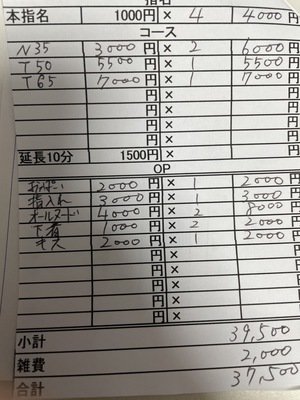 指名
本指名 1000円 × 4 4000円
コース
N35 3000円 × 2 6000円
T50 5500円 × 1 5500円
T65 7000円 × 1 7000円
円 × 円
円 × 円
円 × 円
円 × 円
延長10分 1500円 × 円
OP
おっぱい 2000円 × 1 2000円
指入れ 3000円 × 1 3000円
オールヌード 4000円 × 2 8000円
下着 1000円 × 2 2000円
キス 2000円 × 1 2000円
円 × 円
円 × 円
円 × 円
円 × 円
小計 39,500
雑費 2,000
合計 37,500